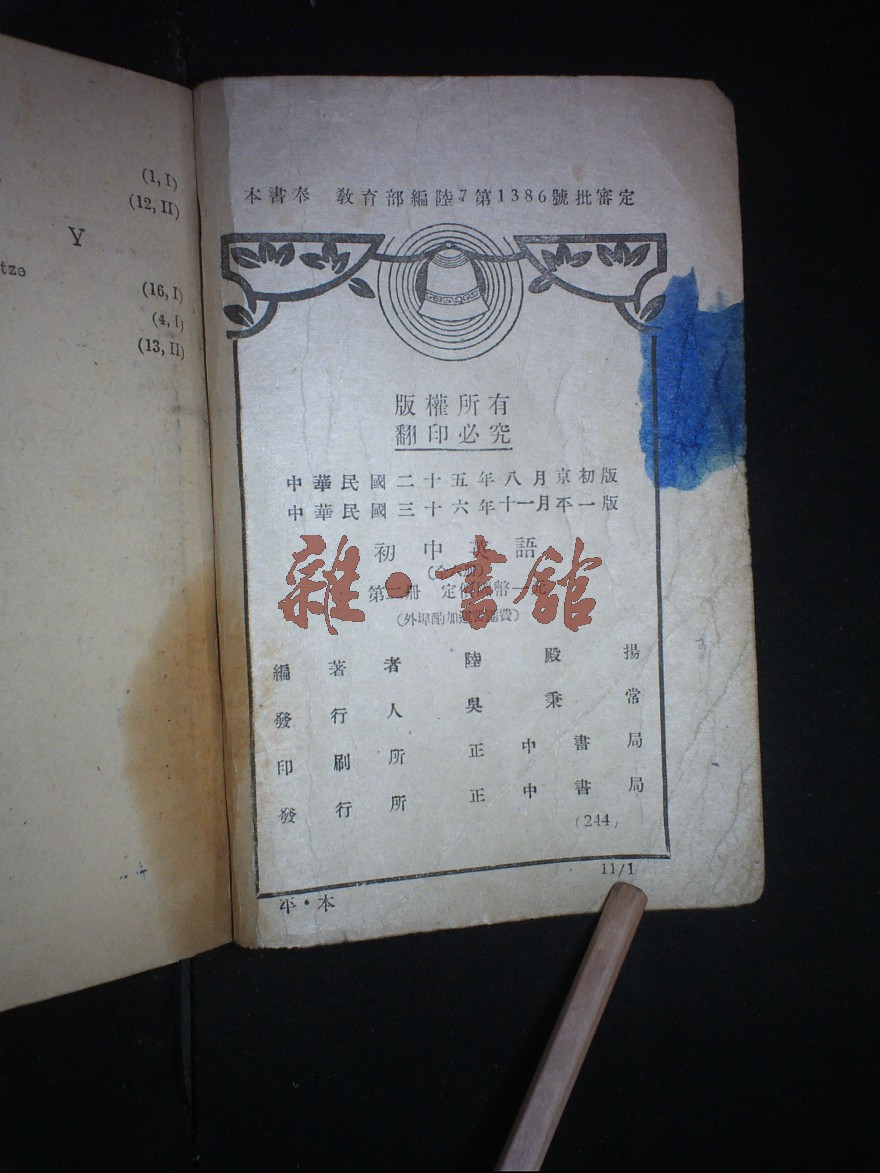 (1, I)
(12, II)
Y
tze
(16, I)
(4, I)
(13, II)
本書奉 教育部編陸7第1386號批審定
版權所有
翻印必究
中華民國二十五年八月京初版
中華民國三十六年十一月平一版
初中英語
第二冊 定價國幣一元
(外埠酌加運費滙費)
編著者 陸殿揚
發行人 吳秉常
印刷所 正中書局
發行所 正中書局
(244)
11/1
平・本
雜・書館